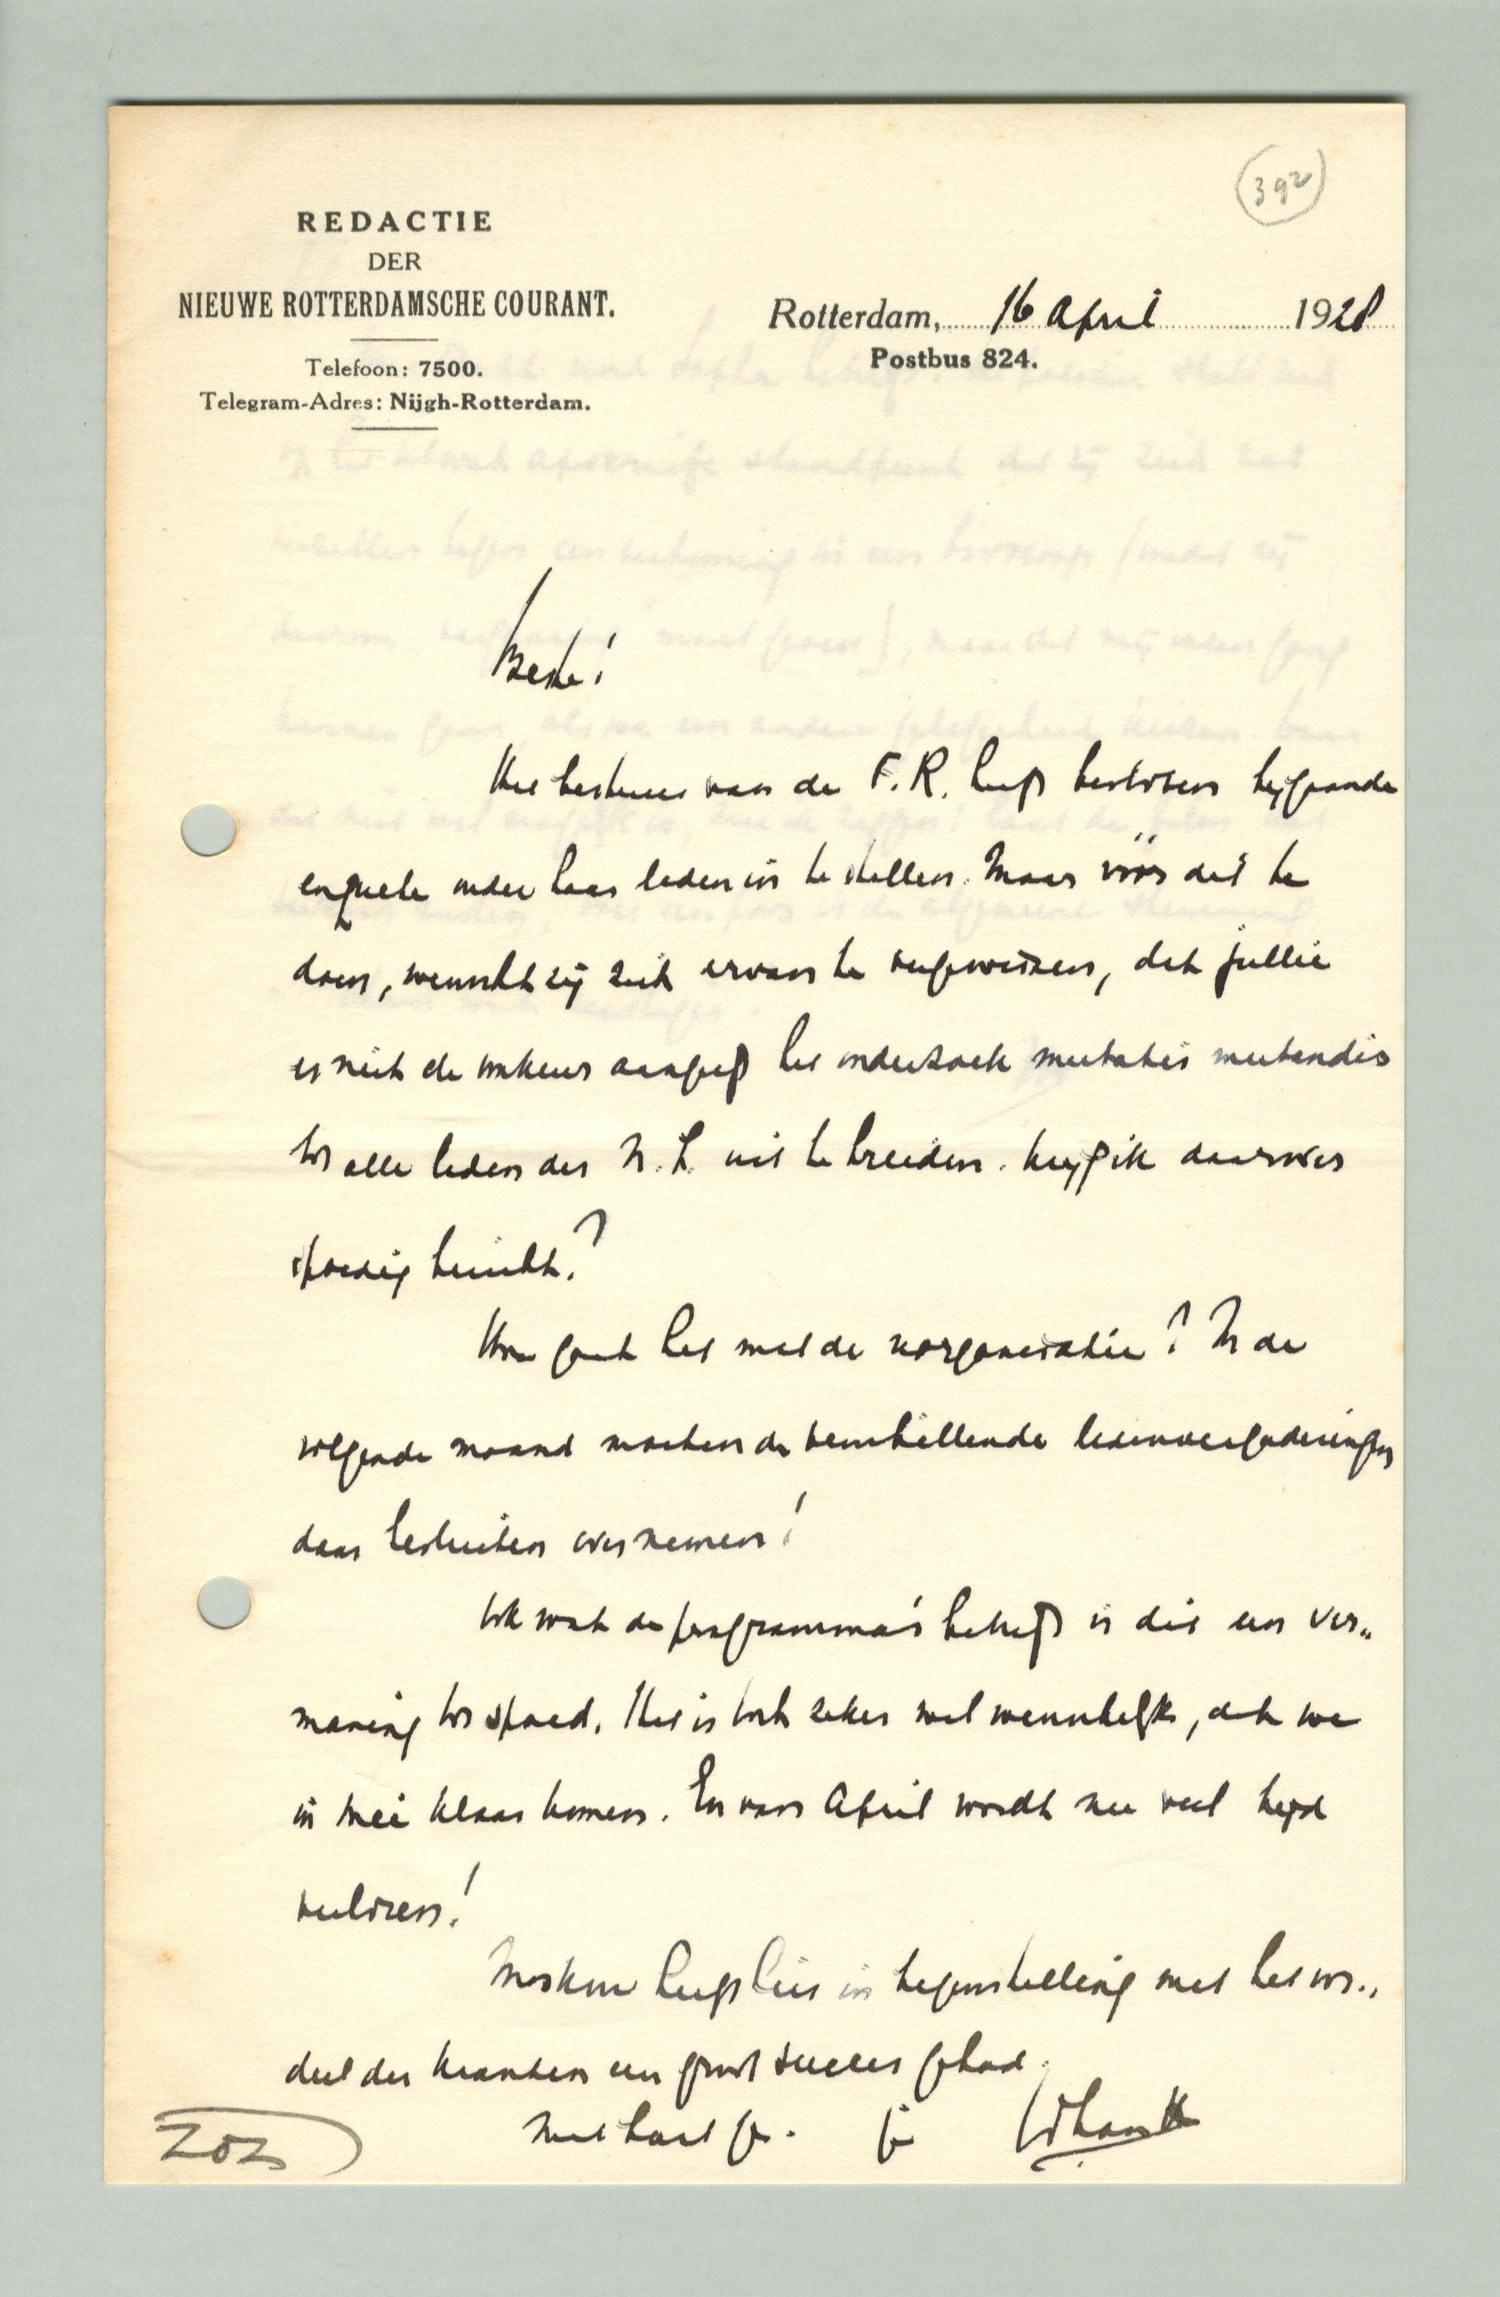 392
REDACTIE
DER
NIEUWE ROTTERDAMSCHE COURANT.
Rotterdam, 16 April 1928
Postbus 824.
Telefoon: 7500.
Telegram-Adres: Nijgh-Rotterdam.
Beste!
Het bestuur van de F.R. heeft besloten bijgaande
enquete onder haar leden in te stellen. Maar vóór dit te
doen, wenscht zij zich ervan te vergewissen, dat jullie
er niet de voorkeur aangeeft het onderzoek mutatis mutandis
tot alle leden der N.L. uit te breiden. Krijg ik daarover
spoedig bericht?
Hoe gaat het met de reorganisatie? In de
volgende maand moeten de verschillende ledenvergaderingen
daar besluiten over nemen!
Ook wat de programma's betreft is dit een ver-
maning tot spoed. Het is toch zeker wel wenschelijk, dat we
in Mei klaar komen. En voor April wordt nu veel tijd
verloren!
Moskou heeft hier in tegenstelling met het oor-
deel der kranten een groot succes gehad.
Met hart. gr. je
ZOZ